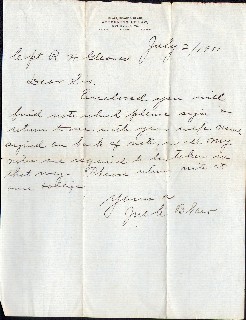 July 21, 190
Capt R. H. Gleaves
Dear Sir,
Enclosed you will
find note which please sign &
return to me with your wife name
signed on back of note, as all my
notes are required to be taken in
that way. Please return note at
once & oblige
Yours &